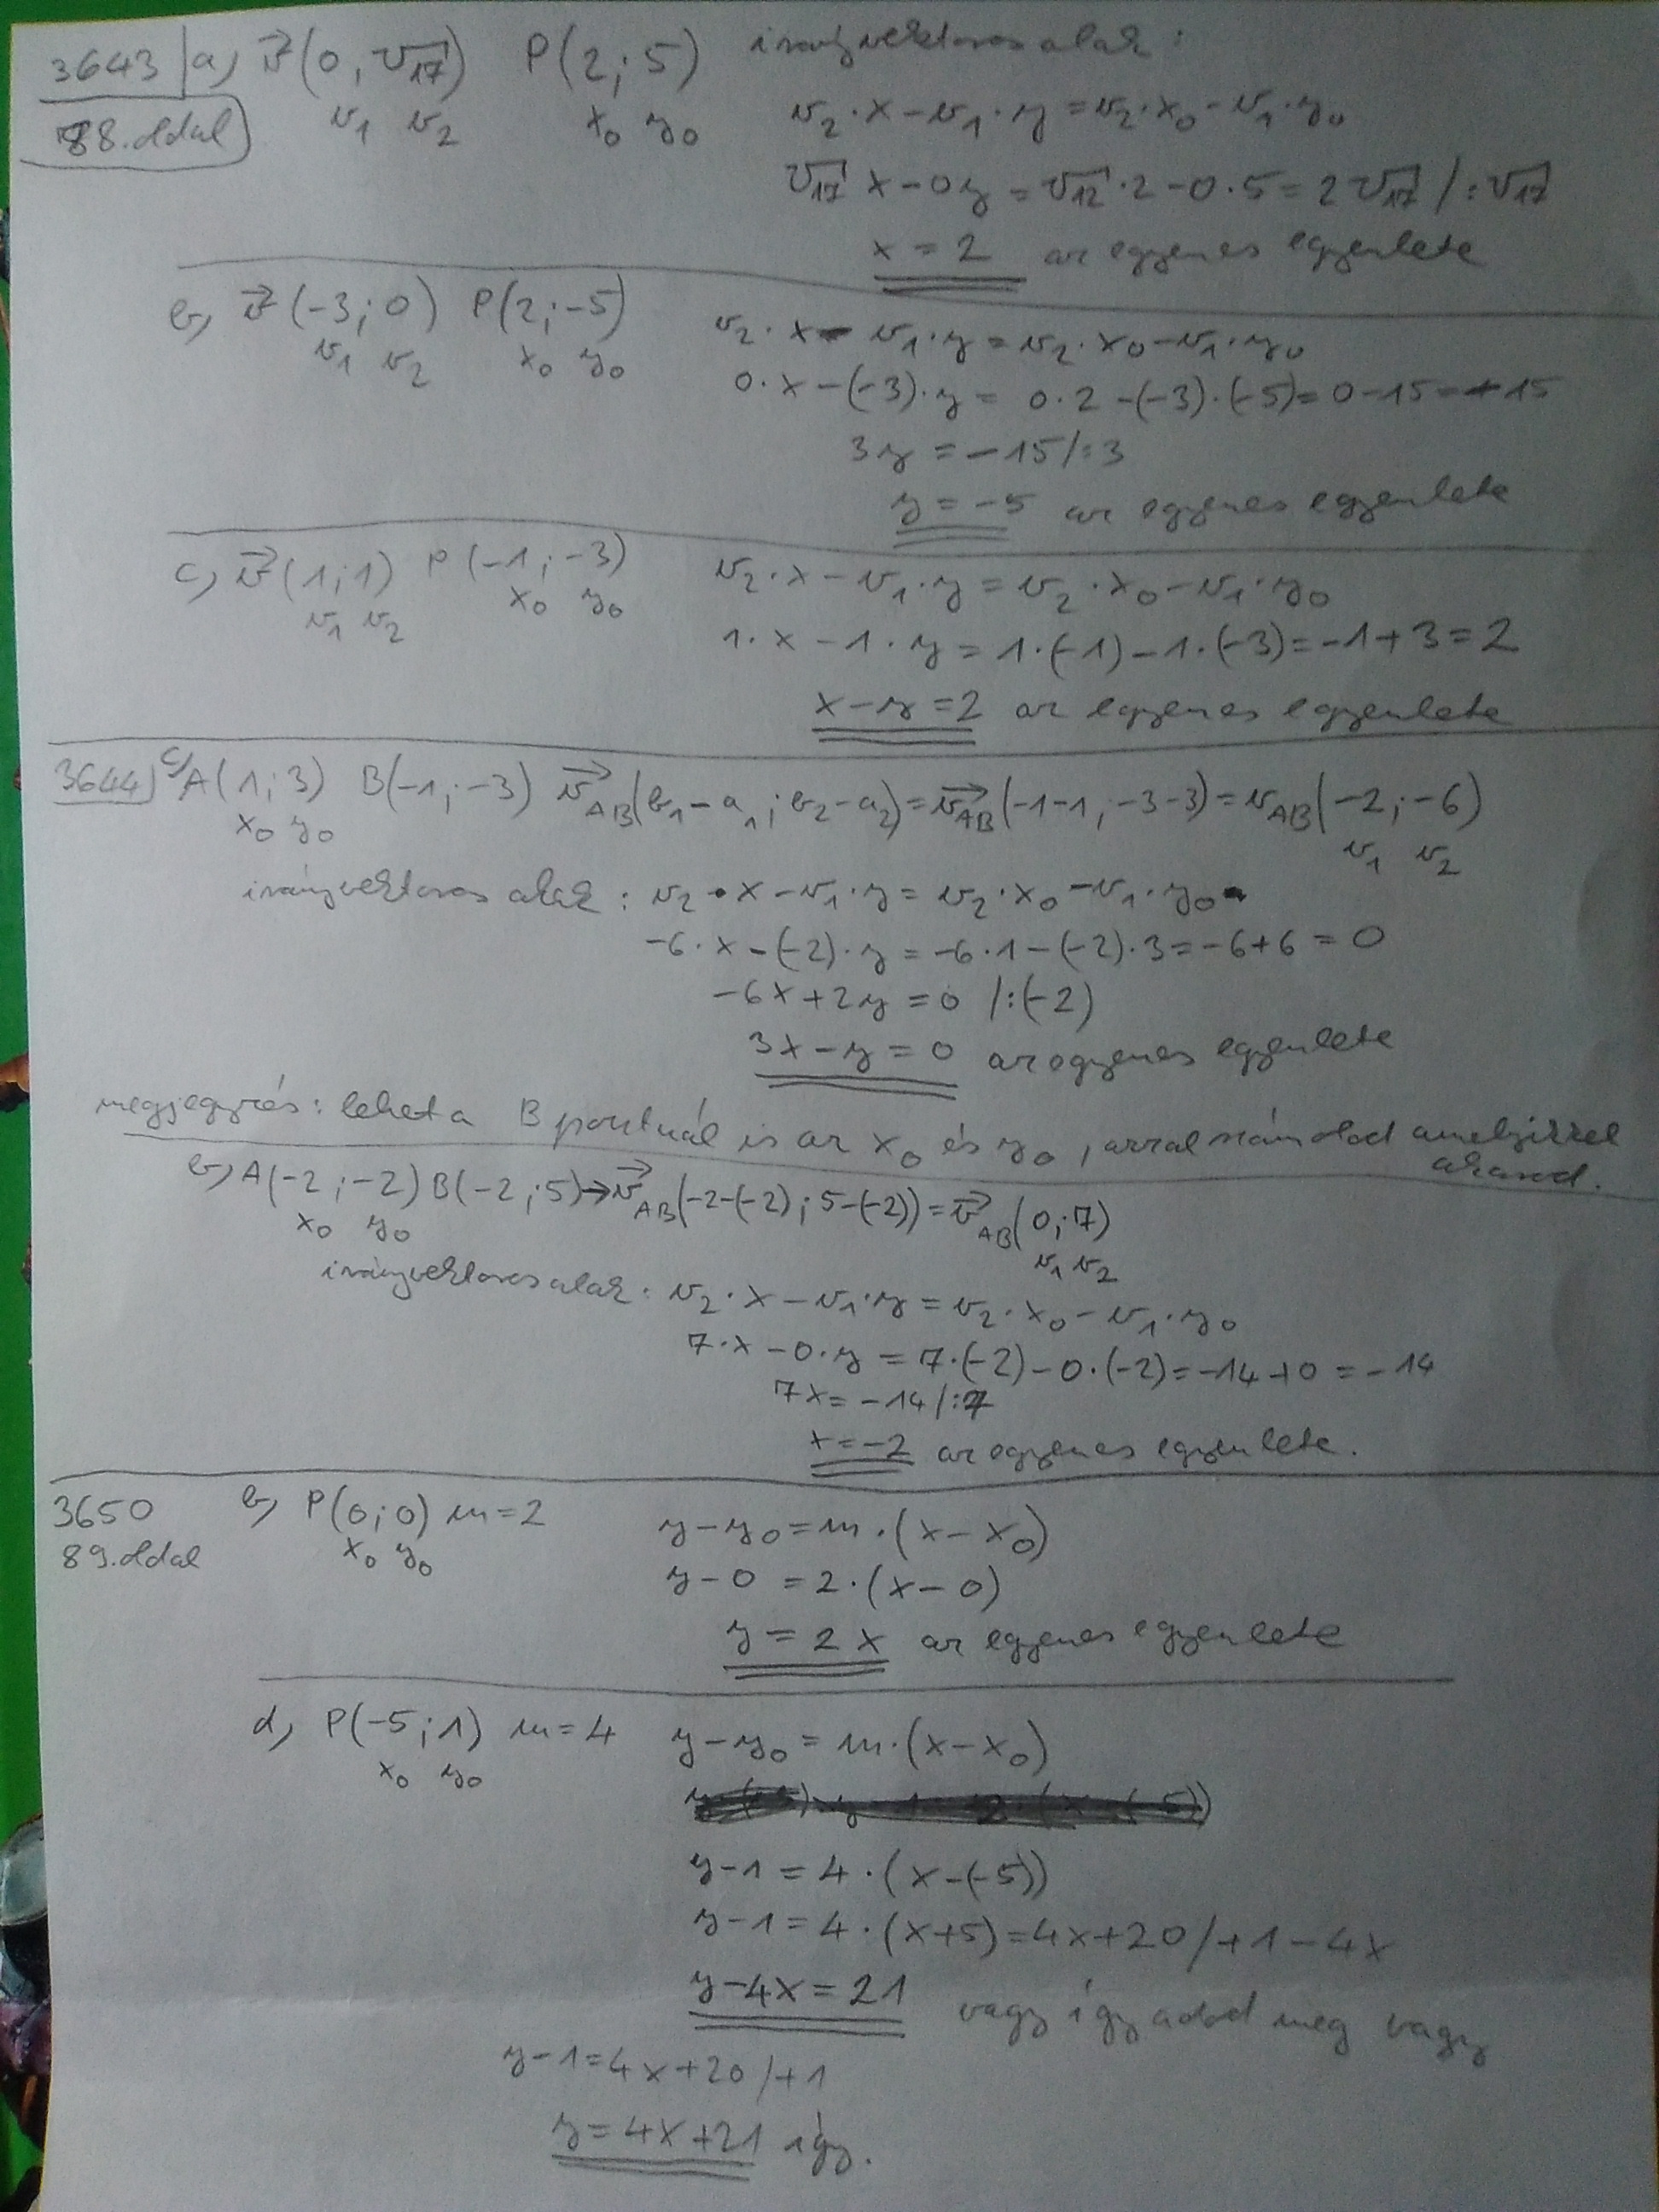 3643 a, v⃗(0, √17) P(2; 5) irányvektoros alak:
88. oldal v₁ v₂ x₀ y₀ v₂·x-v₁·y=v₂·x₀-v₁·y₀
√17 x-0y=√17·2-0·5=2√17 /:√17
x=2 az egyenes egyenlete
b, v⃗(-3; 0) P(2; -5) v₂·x-v₁·y=v₂·x₀-v₁·y₀
v₁ v₂ x₀ y₀
0·x-(-3)·y=0·2-(-3)·(-5)=0-15=-15
3y=-15/:3
y=-5 az egyenes egyenlete
c, v⃗(1; 1) P(-1; -3) v₂·x-v₁·y=v₂·x₀-v₁·y₀
v₁ v₂ x₀ y₀
1·x-1·y=1·(-1)-1·(-3)=-1+3=2
x-y=2 az egyenes egyenlete
3644) c, A(1; 3) B(-1; -3) v⃗AB(b₁-a₁; b₂-a₂)=v⃗AB(-1-1; -3-3)=vAB(-2; -6)
x₀ y₀ v₁ v₂
irányvektoros alak: v₂·x-v₁·y=v₂·x₀-v₁·y₀
-6·x-(-2)·y=-6·1-(-2)·3=-6+6=0
-6x+2y=0 /:(-2)
3x-y=0 az egyenes egyenlete
megjegyzés: lehet a B pontnál is az x₀ és y₀, azzal számolod amelyikkel
akarod.
b, A(-2; -2) B(-2; 5)→v⃗AB(-2-(-2); 5-(-2))=v⃗AB(0; 7)
x₀ y₀ v₁ v₂
irányvektoros alak: v₂·x-v₁·y=v₂·x₀-v₁·y₀
7·x-0·y=7·(-2)-0·(-2)=-14+0=-14
7x=-14/:7
x=-2 az egyenes egyenlete.
3650 b, P(0; 0) m=2 y-y₀=m·(x-x₀)
89. oldal x₀ y₀
y-0=2·(x-0)
y=2x az egyenes egyenlete
d, P(-5; 1) m=4 y-y₀=m·(x-x₀)
x₀ y₀
y-1=4·(x-(-5))
y-1=4·(x+5)=4x+20/+1-4x
y-4x=21 vagy így adod meg vagy
y-1=4x+20/+1
y=4x+21 így.